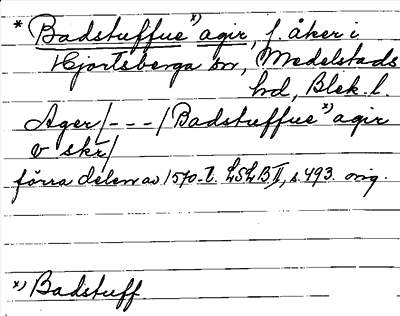 * Badstuffue x) agir, f. åker i
Hjortsberga sn, Medelstads
hd, Blek. l.
Ager/---/Badstuffue x) agir
v skr/
förra delen av 1570-t. LSLB II, s. 493. orig.
x) Badstuff